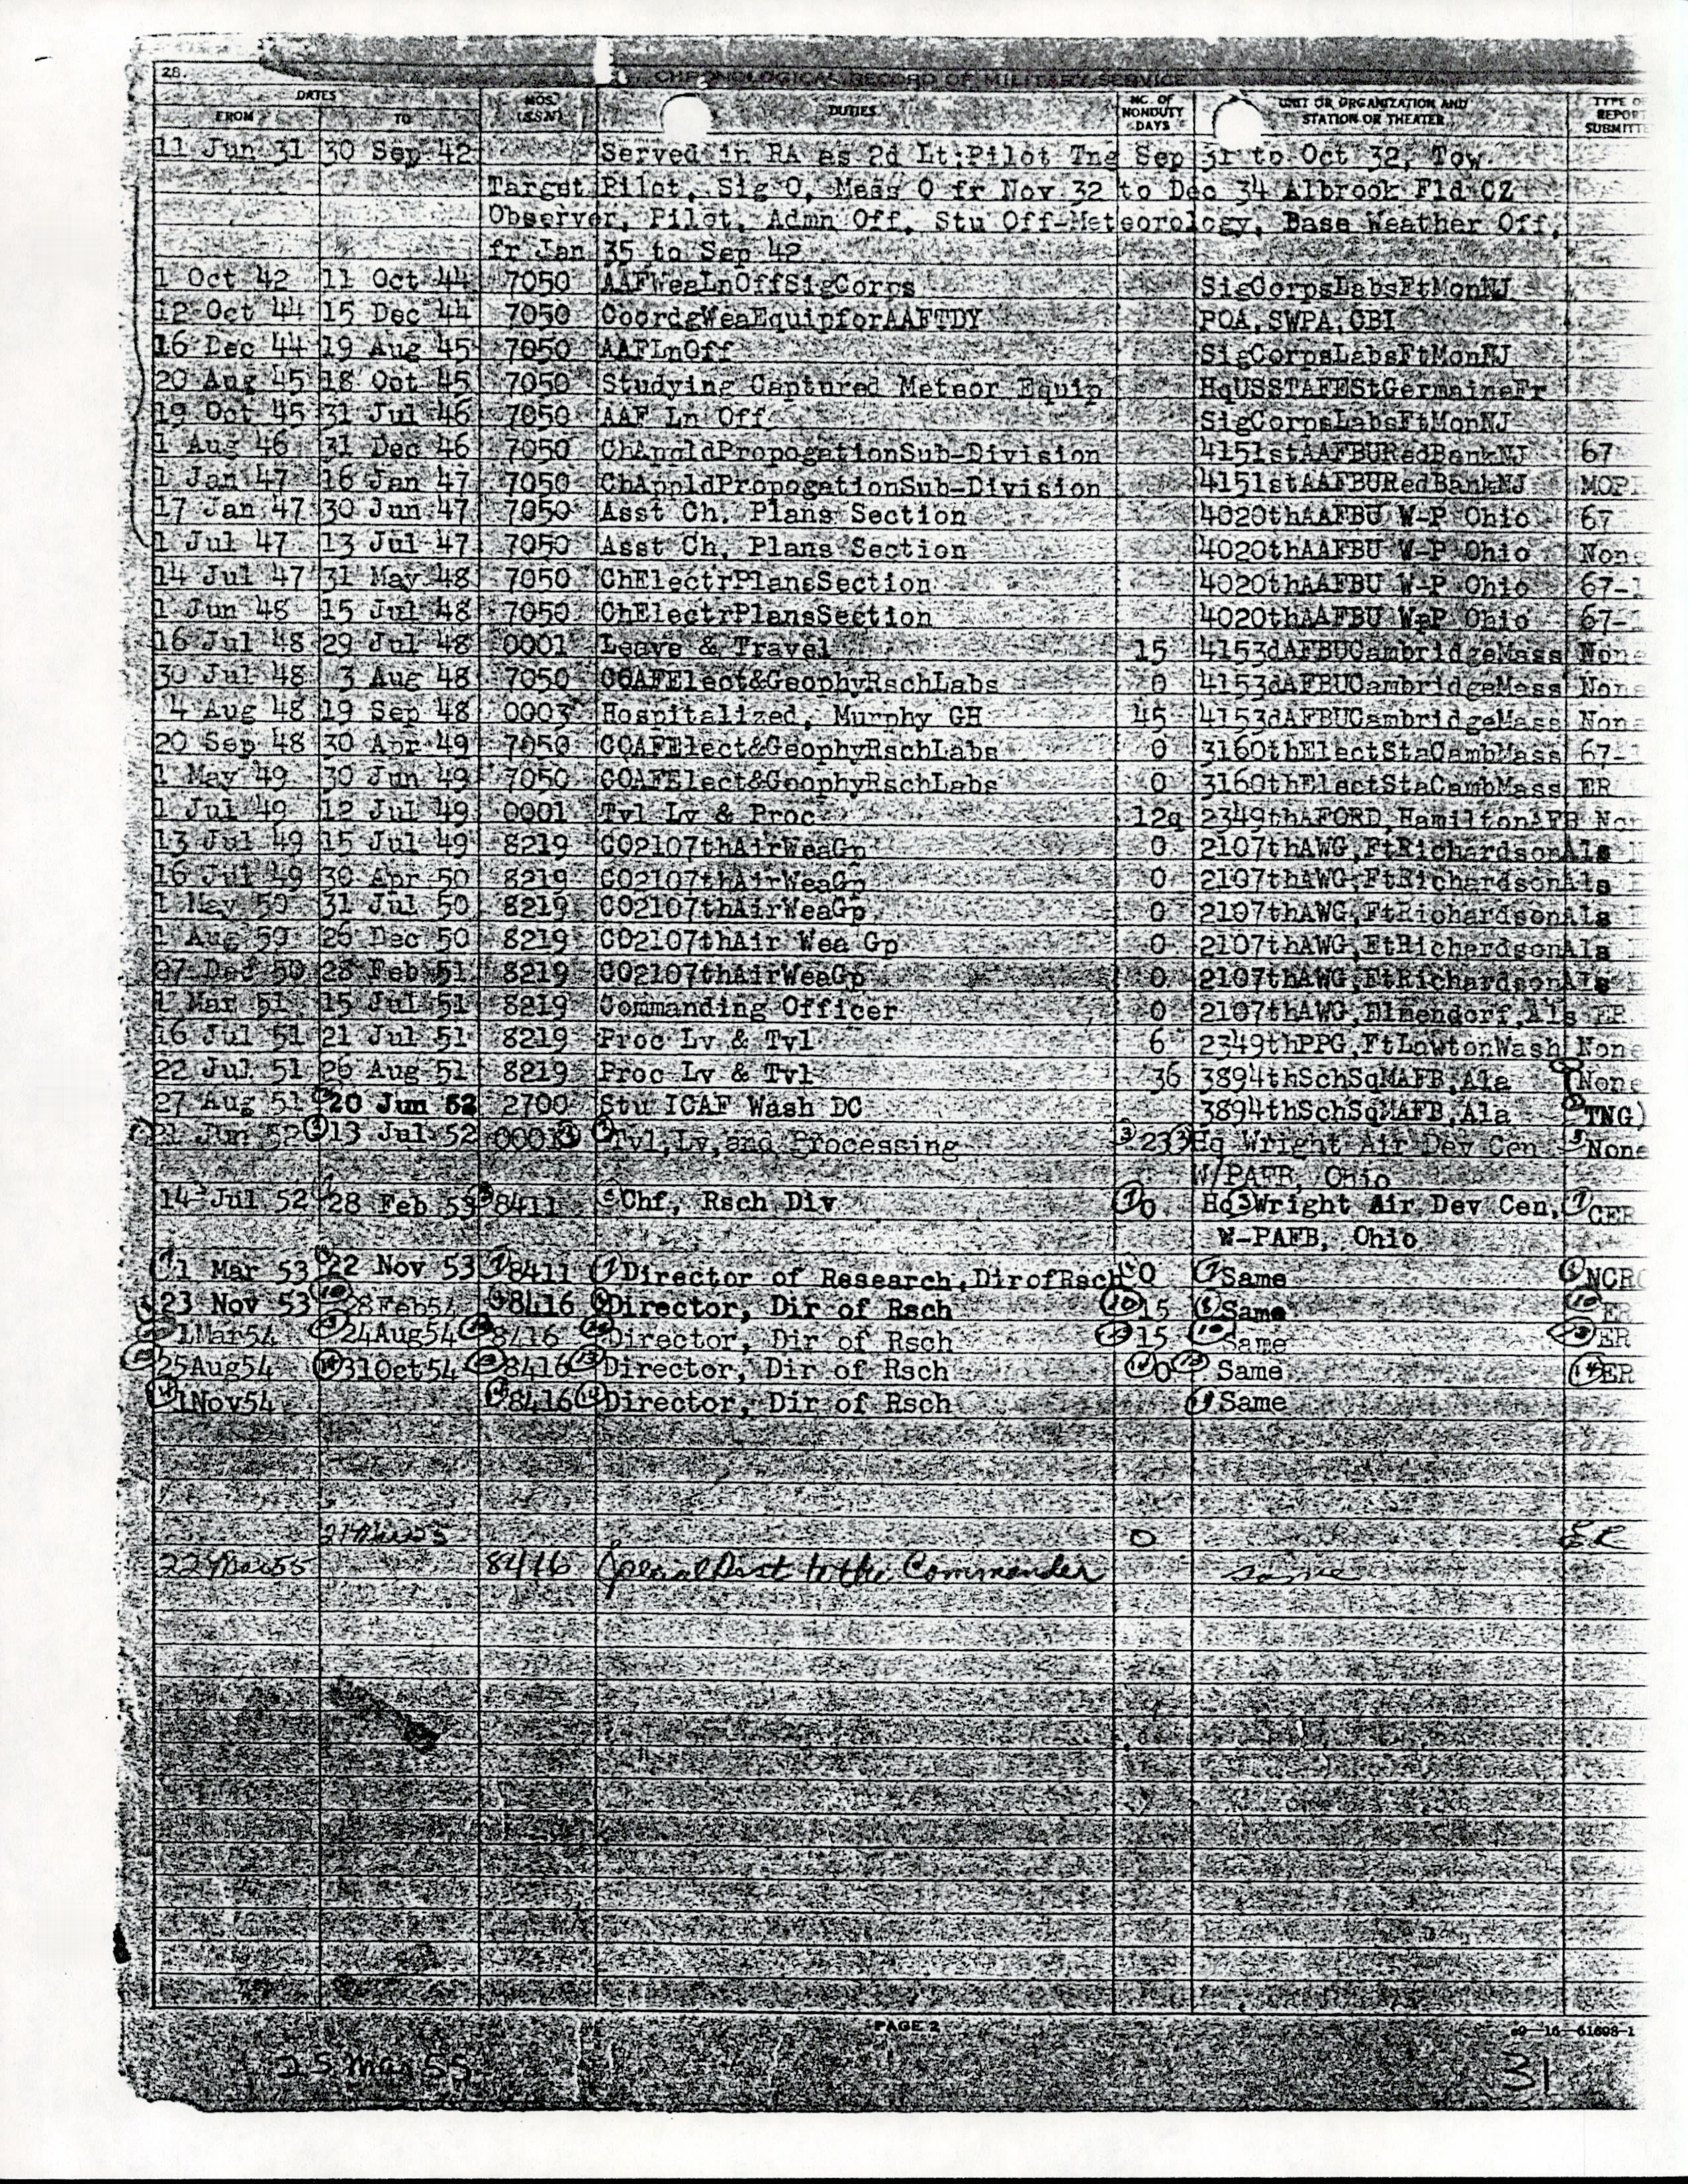 28. CHRONOLOGICAL RECORD OF MILITARY SERVICE
DATES MOS. (SSN) DUTIES NO. OF NONDUTY DAYS UNIT OR ORGANIZATION AND STATION OR THEATER TYPE O REPORT SUBMITTE
FROM TO
11 Jun 31 30 Sep 42 Served in RA as 2d Lt:Pilot Tng Sep 31 to Oct 32, Tow
Target Pilot, Sig O, Mess O fr Nov 32 to Dec 34 Albrook Fld CZ
Observer, Pilot, Admn Off, Stu Off-Meteorology, Base Weather Off,
fr Jan 35 to Sep 42
1 Oct 42 11 Oct 44 7050 AAFWeaLnOffSigCorps SigCorpsLabsFtMonNJ
12 Oct 44 15 Dec 44 7050 CoordgWeaEquipforAAFTDY POA,SWPA,CBI
16 Dec 44 19 Aug 45 7050 AAFLnOff SigCorpsLabsFtMonNJ
20 Aug 45 18 Oct 45 7050 Studying Captured Meteor Equip HqUSSTAFEStGermaineFr
19 Oct 45 31 Jul 46 7050 AAF Ln Off SigCorpsLabsFtMonNJ
1 Aug 46 31 Dec 46 7050 ChAppldPropogationSub-Division 4151stAAFBURedBankNJ 67
1 Jan 47 16 Jan 47 7050 ChAppldPropogationSub-Division 4151stAAFBURedBankNJ
17 Jan 47 30 Jun 47 7050 Asst Ch. Plans Section 4020thAAFBU W-P Ohio 67
1 Jul 47 13 Jul 47 7050 Asst Ch. Plans Section 4020thAAFBU W-P Ohio None
14 Jul 47 31 May 48 7050 ChElectrPlansSection 4020thAAFBU W-P Ohio 67-1
1 Jun 48 15 Jul 48 7050 ChElectrPlansSection 4020thAAFBU W-P Ohio 67-1
16 Jul 48 29 Jul 48 0001 Leave & Travel 15 4153dAFBUCambridgeMass None
30 Jul 48 3 Aug 48 7050 COAFElect&GeophyRschLabs 0 4153dAFBUCambridgeMass None
4 Aug 48 19 Sep 48 0003 Hospitalized, Murphy GH 45 4153dAFBUCambridgeMass None
20 Sep 48 30 Apr 49 7050 COAFElect&GeophyRschLabs 0 3160thElectStaCambMass 67-1
1 May 49 30 Jun 49 7050 COAFElect&GeophyRschLabs 0 3160thElectStaCambMass ER
1 Jul 49 12 Jul 49 0001 Tvl Lv & Proc 12 2349thAFORD,HamiltonAFB Non
13 Jul 49 15 Jul 49 8219 CO2107thAirWeaGp 0 2107thAWG,FtRichardsonAla
16 Jul 49 30 Apr 50 8219 CO2107thAirWeaGp 0 2107thAWG,FtRichardsonAla
1 May 50 31 Jul 50 8219 CO2107thAirWeaGp 0 2107thAWG,FtRichardsonAla
1 Aug 50 26 Dec 50 8219 CO2107thAir Wea Gp 0 2107thAWG,FtRichardsonAla
27 Dec 50 28 Feb 51 8219 CO2107thAirWeaGp 0 2107thAWG,FtRichardsonAla
1 Mar 51 15 Jul 51 8219 Commanding Officer 0 2107thAWG,Elmendorf,Als ER
16 Jul 51 21 Jul 51 8219 Proc Lv & Tvl 6 2349thPPG,FtLawtonWash None
22 Jul 51 26 Aug 51 8219 Proc Lv & Tvl 36 3894thSchSqMAFB,Ala (None
27 Aug 51 20 Jun 52 2700 Stu ICAF Wash DC 3894thSchSqMAFB,Ala TNG)
21 Jun 52 13 Jul 52 0001 Tvl,Lv,and Processing 23 Hq Wright Air Dev Cen None
W/PAFB, Ohio
14 Jul 52 28 Feb 53 8411 Chf, Rsch Div 0 Hq Wright Air Dev Cen, CER
W-PAFB, Ohio
1 Mar 53 22 Nov 53 8411 Director of Research,DirofRsch 0 Same NCRC
23 Nov 53 28Feb54 8416 Director, Dir of Rsch 15 Same ER
1Mar54 24Aug54 8416 Director, Dir of Rsch 15 Same ER
25Aug54 31Oct54 8416 Director, Dir of Rsch 0 Same ER
1Nov54 8416 Director, Dir of Rsch Same
21Mar55 0 ER
22Mar55 8416 Special Asst to the Commander same
PAGE 2
25 Mar 55
31